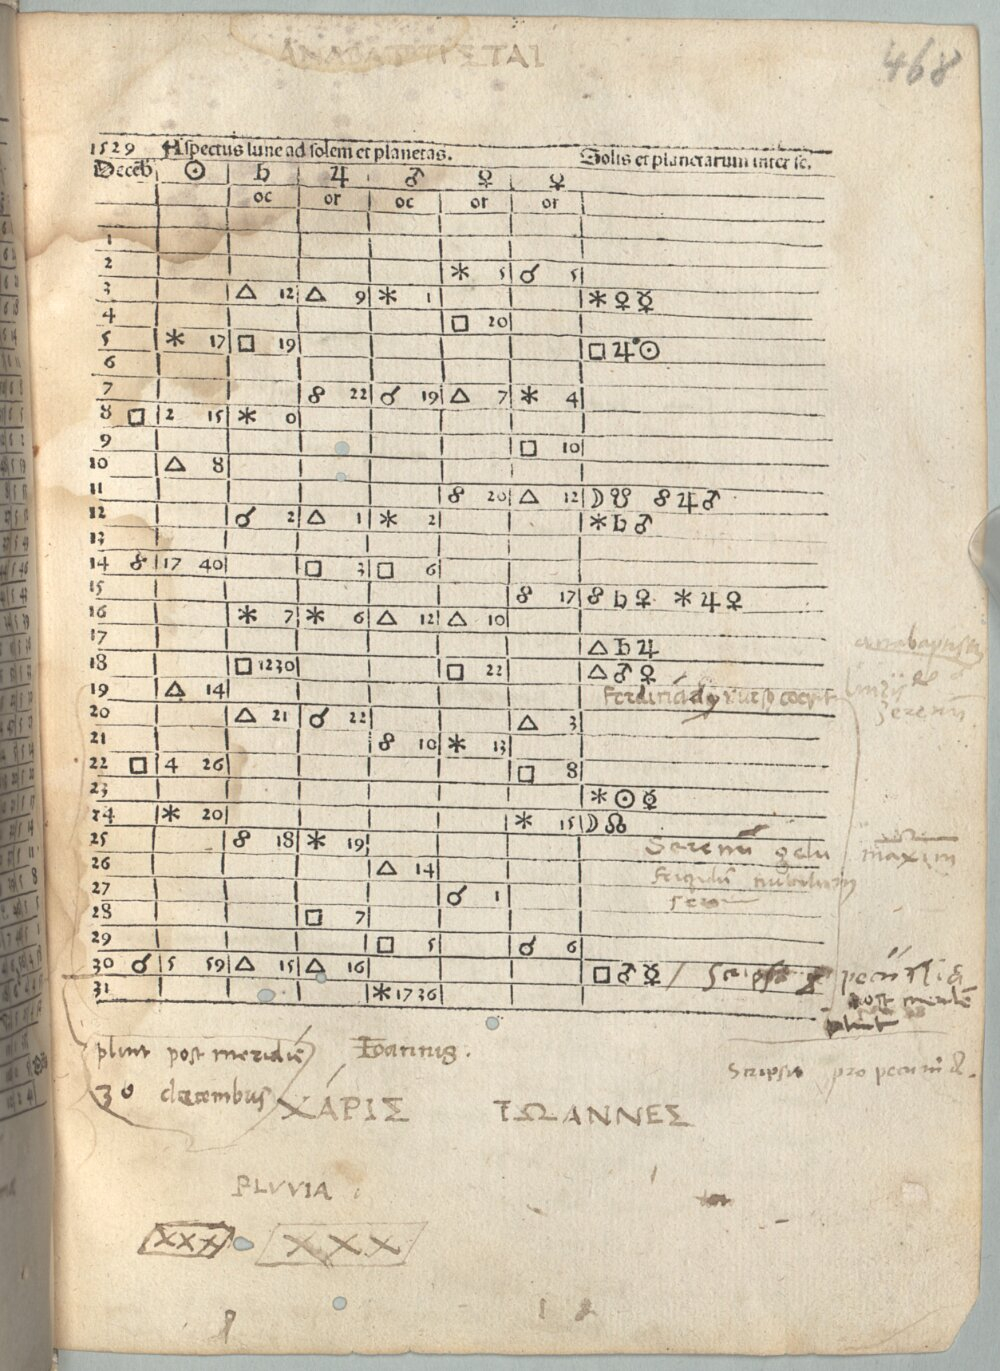 468
1529 Aspectus lune ad solem et planetas. Solis et planetarum inter se.
Decēb ☉ ♄ ♃ ♂ ♀ ☿
oc or oc or or
1
2 ⚹ 5 ☌ 5
3 △ 12 △ 9 ⚹ 1 ⚹ ♀ ☿
4 □ 20
5 ⚹ 17 □ 19 □ ♃ ☉
6
7 ☍ 22 ☌ 19 △ 7 ⚹ 4
8 □ 2 15 ⚹ 0
9 □ 10
10 △ 8
11 ☍ 20 △ 12 ☽ ☋ ☍ ♃ ♂
12 ☌ 2 △ 1 ⚹ 2 ⚹ ♄ ♂
13
14 ☍ 17 40 □ 3 □ 6
15 ☍ 17 ☍ ♄ ♀ ⚹ ♃ ♀
16 ⚹ 7 ⚹ 6 △ 12 △ 10
17 △ ♄ ♃
18 □ 12 30 □ 22 △ ♂ ♀
19 △ 14
20 △ 21 ☌ 22 △ 3
21 ☍ 10 ⚹ 13
22 □ 4 26 □ 8
23 ⚹ ☉ ☿
24 ⚹ 20 ⚹ 15 ☽ ☊
25 ☍ 18 ⚹ 19
26 △ 14
27 ☌ 1
28 □ 7
29 □ 5 ☌ 6
30 ☌ 5 59 △ 15 △ 16 □ ♂ ☿
31 ⚹ 17 36
Serenū gelu maxim
post meridē
pluit
pluit post meridiē Ioannis.
30 decembris
Scripsi pro pecunia.
ΧΑΡΙΣ ΙΩΑΝΝΕΣ
PLVVIA
XXX XXX